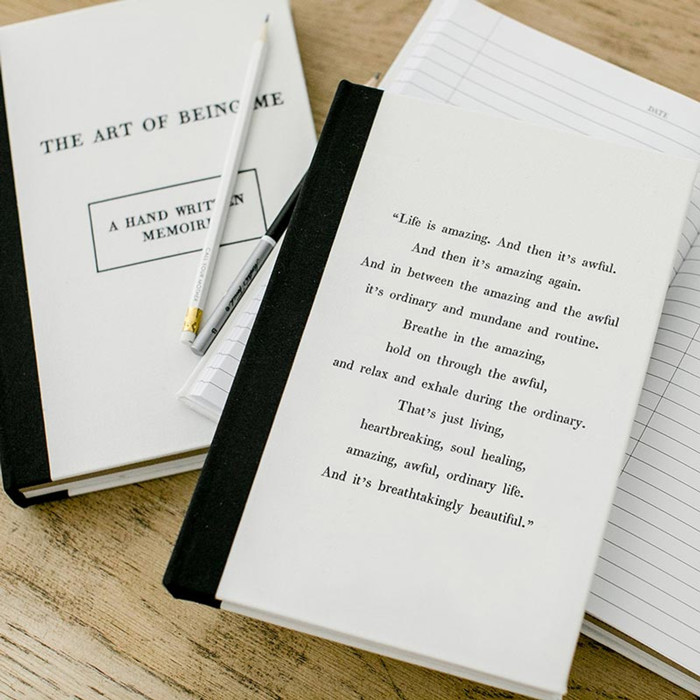 THE ART OF BEING ME
A HAND WRITTEN
MEMOIRE
CALL YOUR MOTHER
DATE
“Life is amazing. And then it’s awful.
And then it’s amazing again.
And in between the amazing and the awful
it’s ordinary and mundane and routine.
Breathe in the amazing,
hold on through the awful,
and relax and exhale during the ordinary.
That’s just living,
heartbreaking, soul healing,
amazing, awful, ordinary life.
And it’s breathtakingly beautiful.”